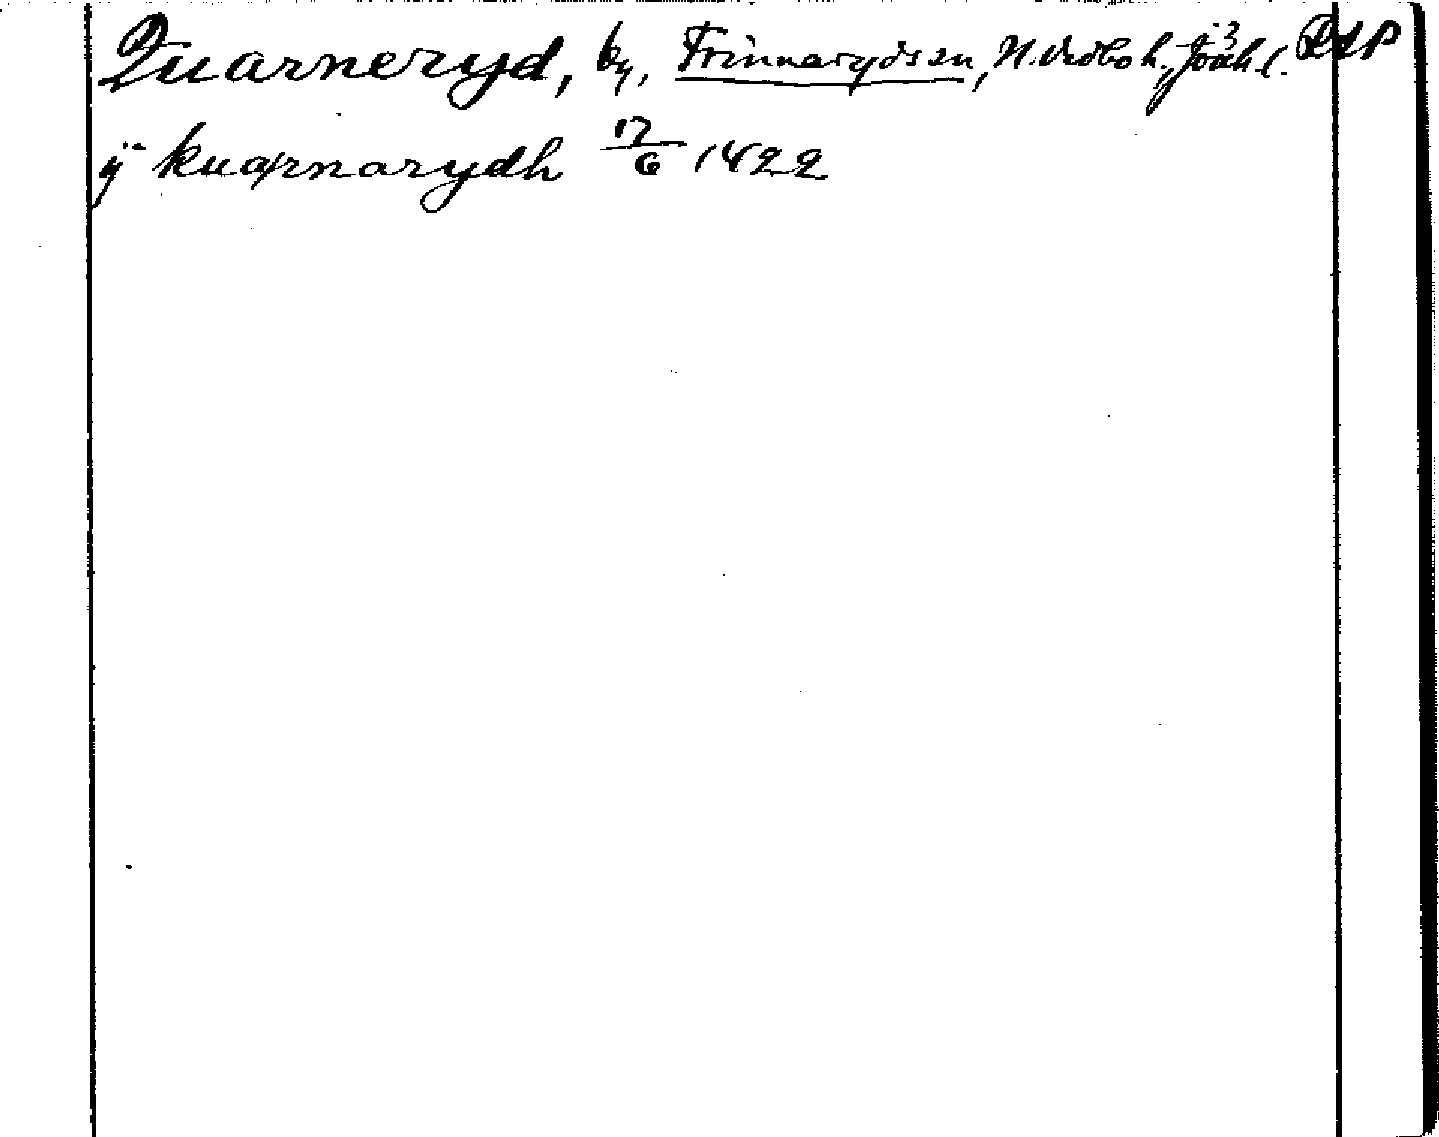 Quarneryd, by, Frinnaryds sn, N. Vedbo h., Jönk l. RAP
ÿ kuarnarydh 17/6 1422